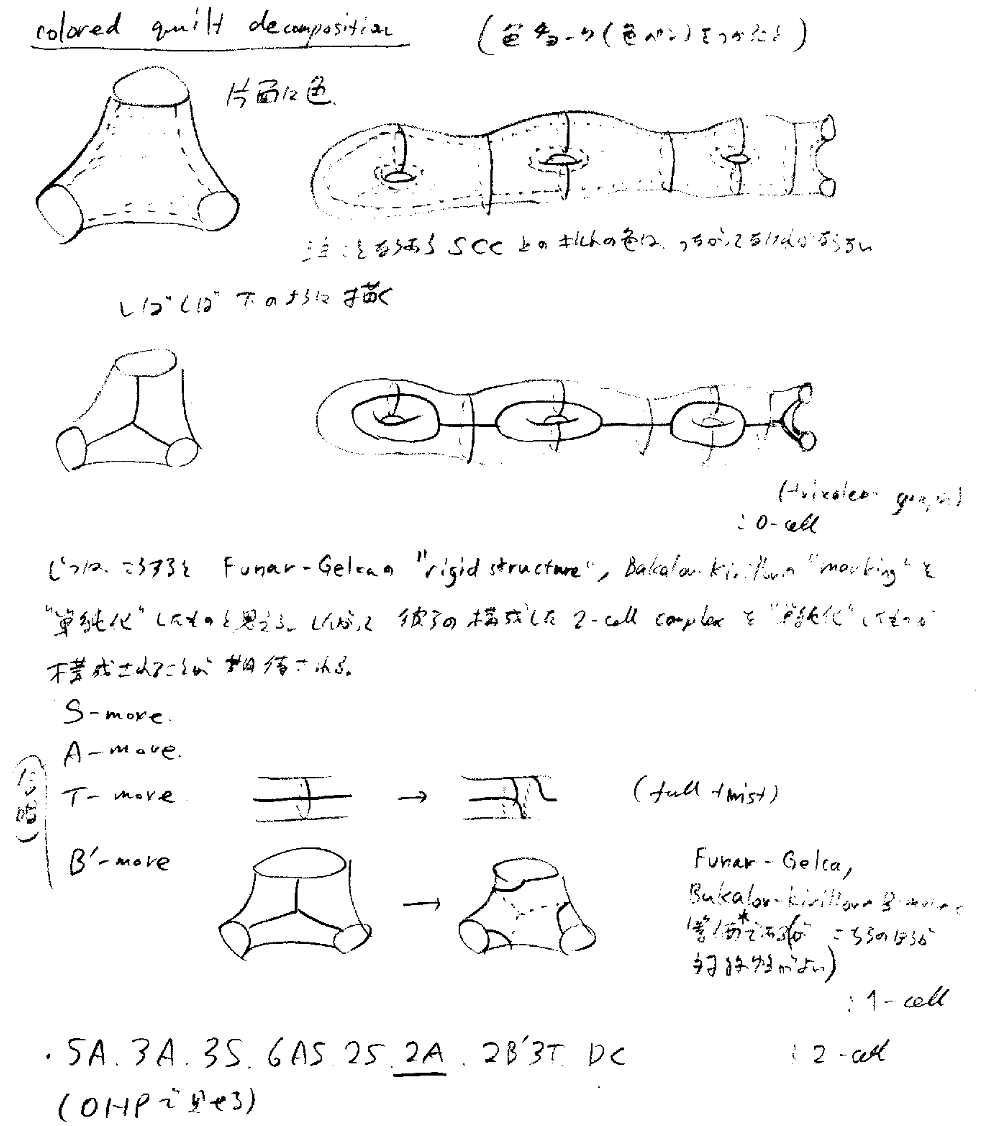 colored quilt decomposition (色チョーク(色ペン)をつかだと)
片面に色.
注:となりあう SCC との の色は、ちがってなければならない
しばしば下のように描く
(trivalent graph)
: 0-cell
じつは、こうすると Funar-Gelcaの "rigid structure", Bakalov-Kirillovの "marking" を
"単純化" したものと思える。したがって 彼らの構成した 2-cell complex を "単純化" したものが
構成されることが期待される。
S-move.
A-move.
T-move → (full twist)
B'-move →
Funar-Gelca,
Bakalov-Kirillovの B-moveと
等価*である(が こちらのほうが
対称性がよい)
: 1-cell
・5A. 3A. 3S. 6AS. 2S. 2A. 2B'3T. DC : 2-cell
(OHPで見せる)